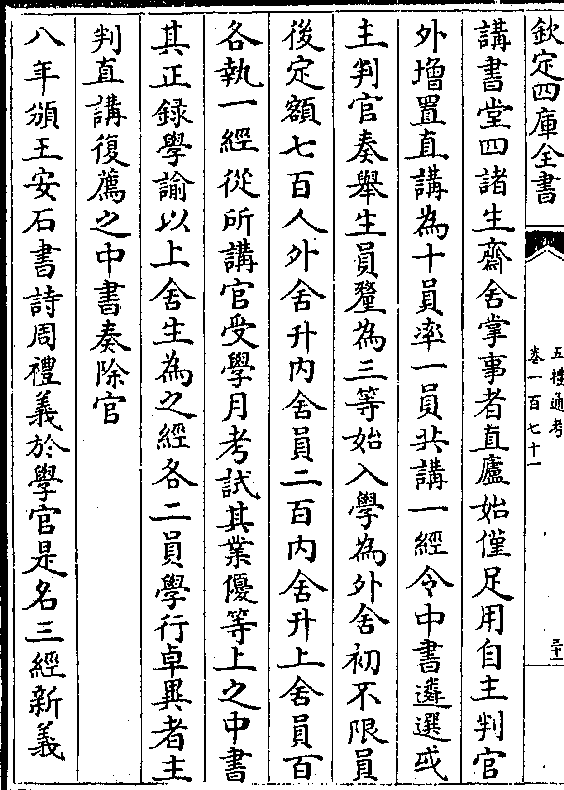 欽定四庫全書
五禮通考
卷一百七十一
三十一
講書堂四諸生齋舍掌事者直廬始僅足用自主判官
外增置直講為十員率一員共講一經令中書遴選或
主判官奏舉生員釐為三等始入學為外舍初不限員
後定額七百人外舍升内舍員二百内舍升上舍員百
各執一經從所講官受學月考試其業優等上之中書
其正録學諭以上舍生為之經各二員學行卓異者主
判直講復薦之中書奏除官
八年頒王安石書詩周禮義於學官是名三經新義